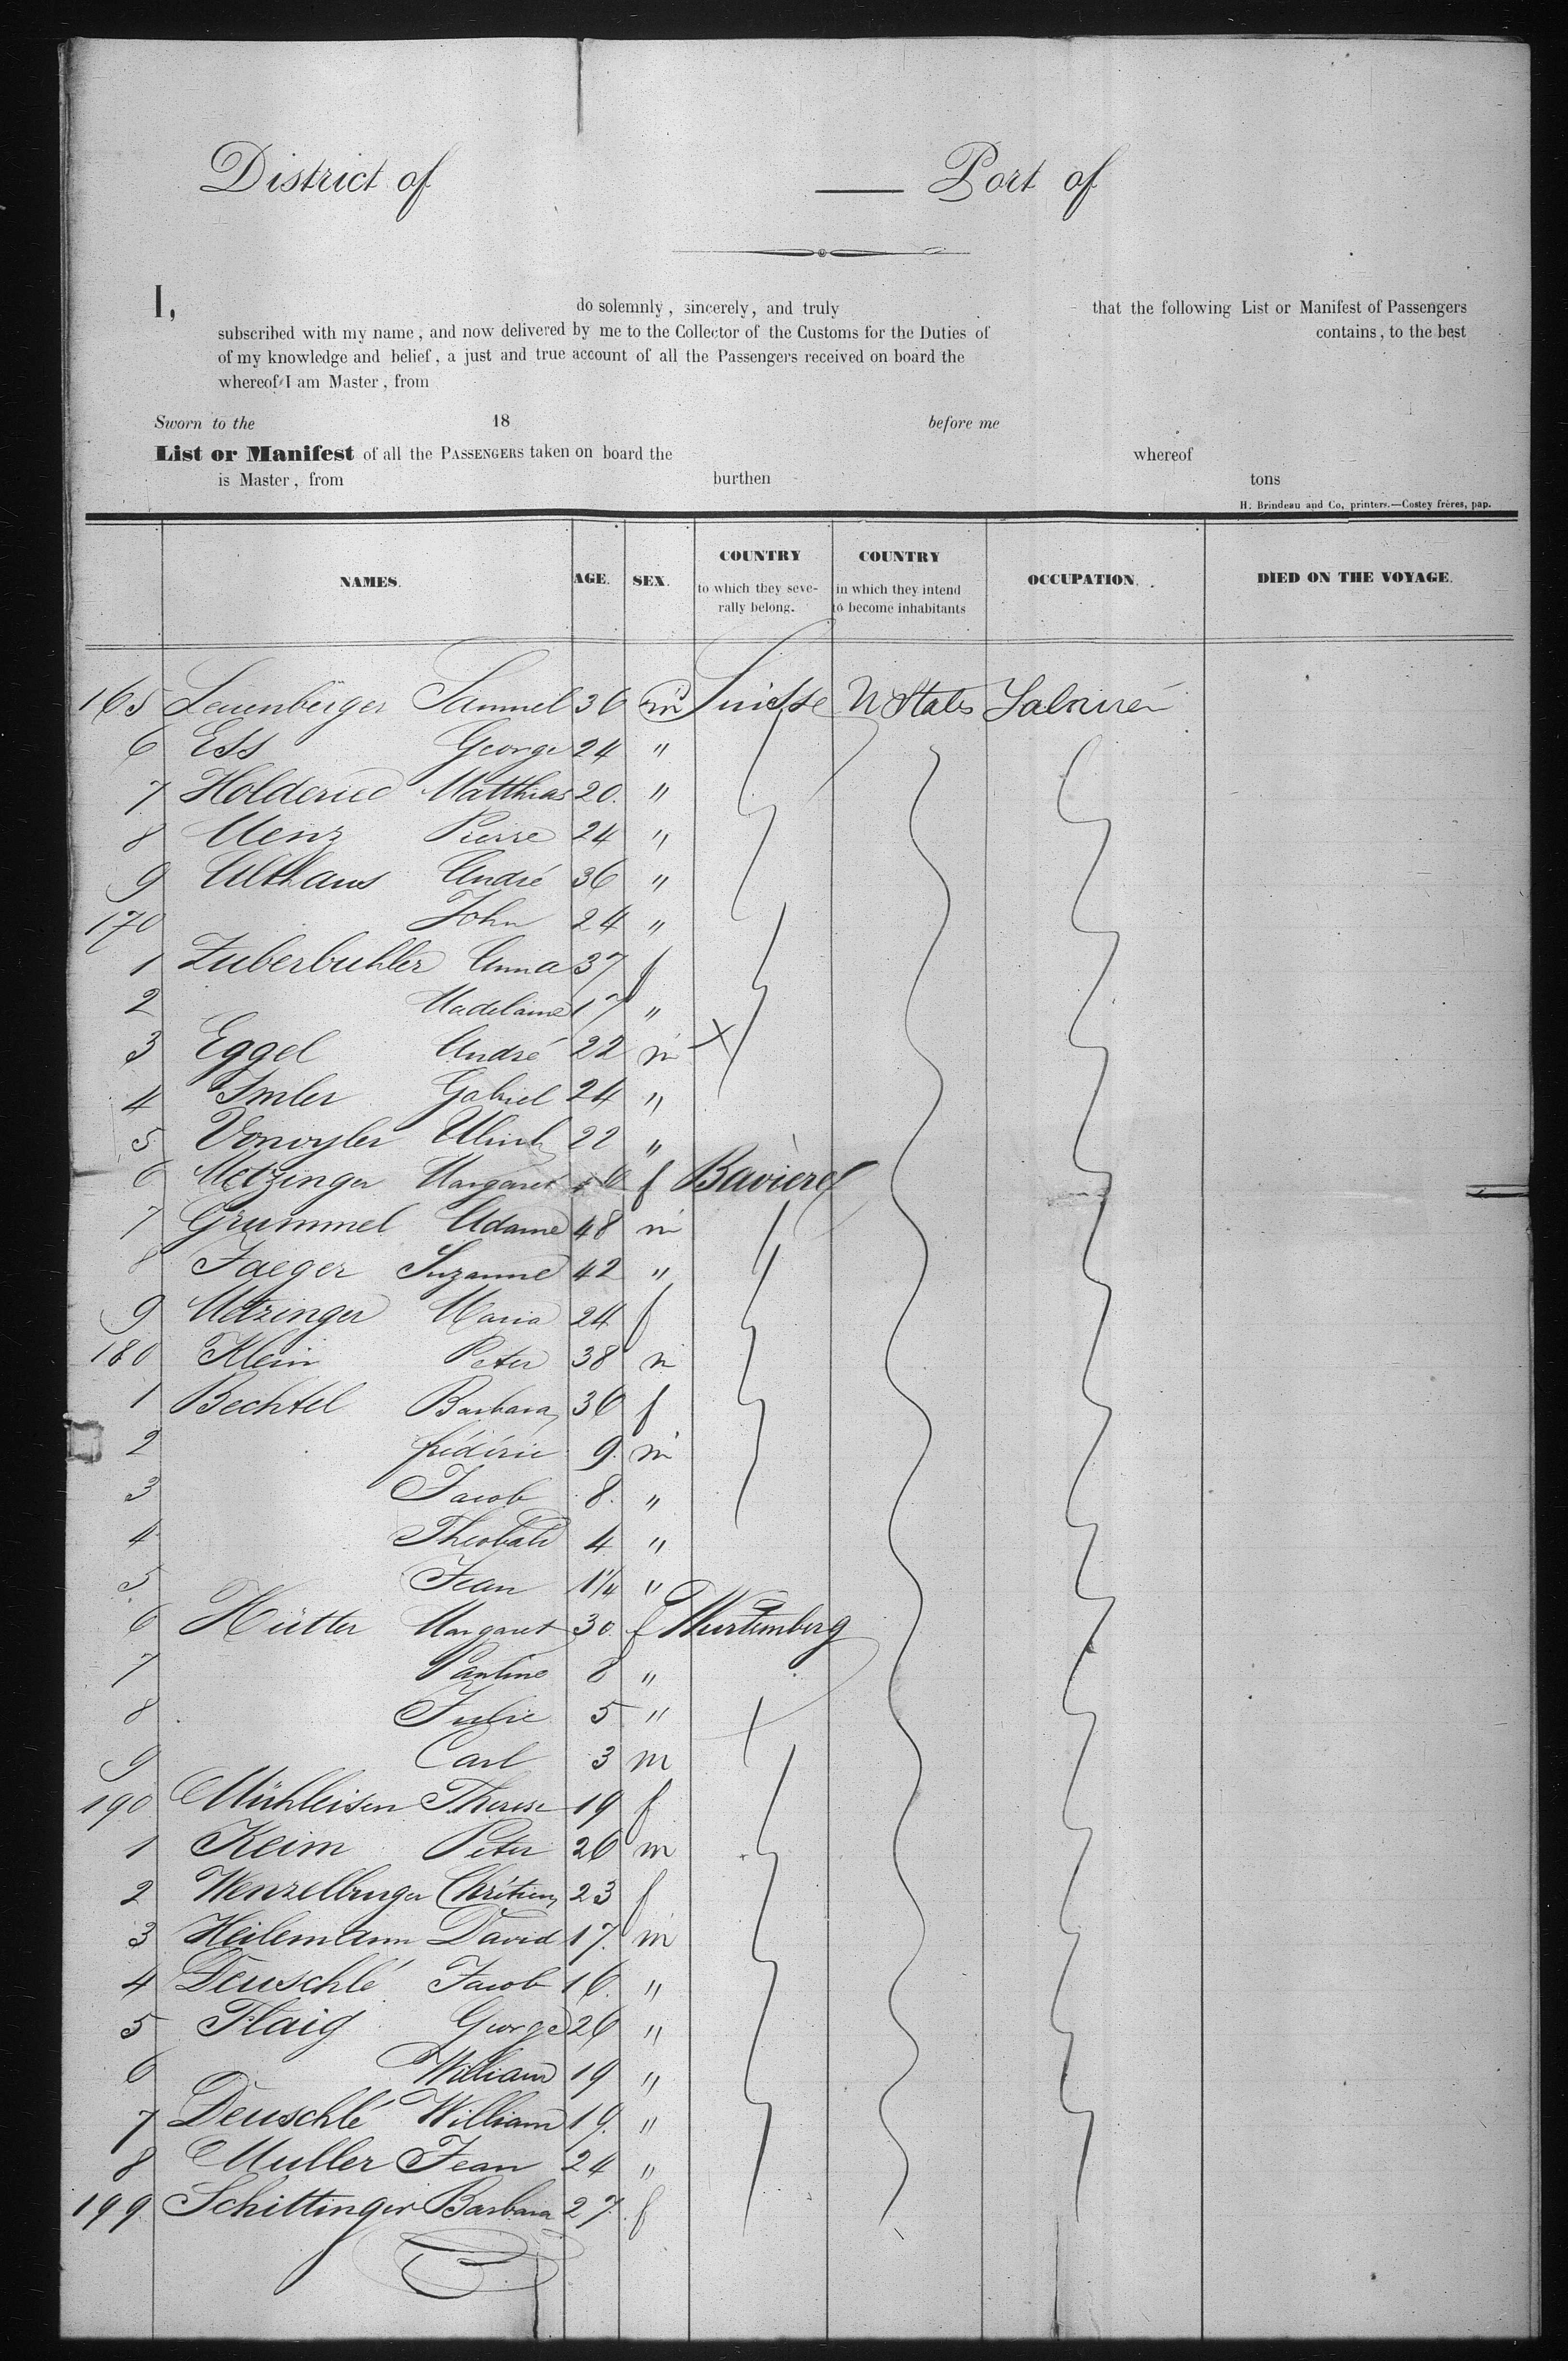 District of — Port of
I, do solemnly, sincerely, and truly that the following List or Manifest of Passengers
subscribed with my name, and now delivered by me to the Collector of the Customs for the Duties of contains, to the best
of my knowledge and belief, a just and true account of all the Passengers received on board the
whereof I am Master, from
Sworn to the 18 before me
List or Manifest of all the PASSENGERS taken on board the whereof
is Master, from burthen tons
H. Brindeau and Co, printers.—Costey frères, pap.
NAMES. AGE. SEX. COUNTRY to which they severally belong. COUNTRY in which they intend to become inhabitants OCCUPATION. DIED ON THE VOYAGE.
165 Leuenbürger Samuel 36 m Suisse U States
6 Ess George 24 "
7 Holderied Matthias 20. "
8 Menz Pierre 24 "
9 Althaus André 36 "
170 John 24 "
1 Zuberbuhler Anna 37 f
2 Madelaine 17 "
3 Eggel André 22 m
4 Imler Gabriel 24 "
5 Vonwyler Ulrich 22 "
6 Metzinger Margaret f Bavière
7 Grummel Adame 48 m
8 Jaeger Suzanne 42 "
9 Metzinger Maria 24 f
180 Klein Peter 38 m
1 Bechtel Barbara 36 f
2 frédéric 9. m
3 Jacob 8. "
4 Theobald 4 "
5 Jean 1 1/4 "
6 Hütter Margaret 30. f Wurtemberg
7 Pauline 8 "
8 Julie 5 "
9 Carl 3 m
190 Mühleisen Therese 19 f
1 Keim Peter 26 m
2 Wenzelburger Chrétien 23 f
3 Heilemann David 17. m
4 Deuschlé Jacob 16. "
5 Flaig George 26 "
6 William 19 "
7 Deuschlé William 19. "
8 Muller Jean 24 "
199 Schittinger Barbara 27. f